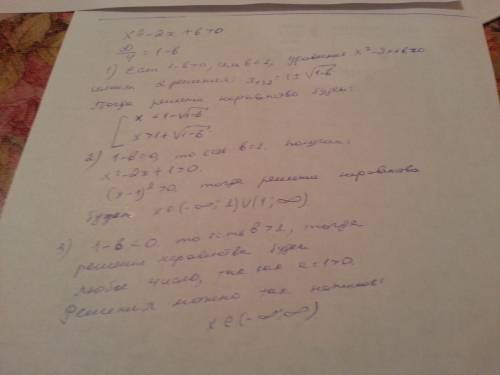 x²-2x+b>0
D/4 = 1-b
1) Если 1-b>0, или b<1, уравнение x²-2x+b=0
имеет 2 решения: x₁,₂ = 1±√1-b
Тогда решение неравенства будет:
[ x < 1-√1-b
x > 1+√1-b
2) 1-b=0, то есть b=1. Получаем:
x²-2x+1>0.
(x-1)²>0, тогда решение неравенства
будет x∈(-∞; 1)∪(1; ∞)
3) 1-b<0. то есть b>1, тогда
решение неравенства будет
любое число, так как a=1>0.
Решения можно так написать:
x∈(-∞; ∞)